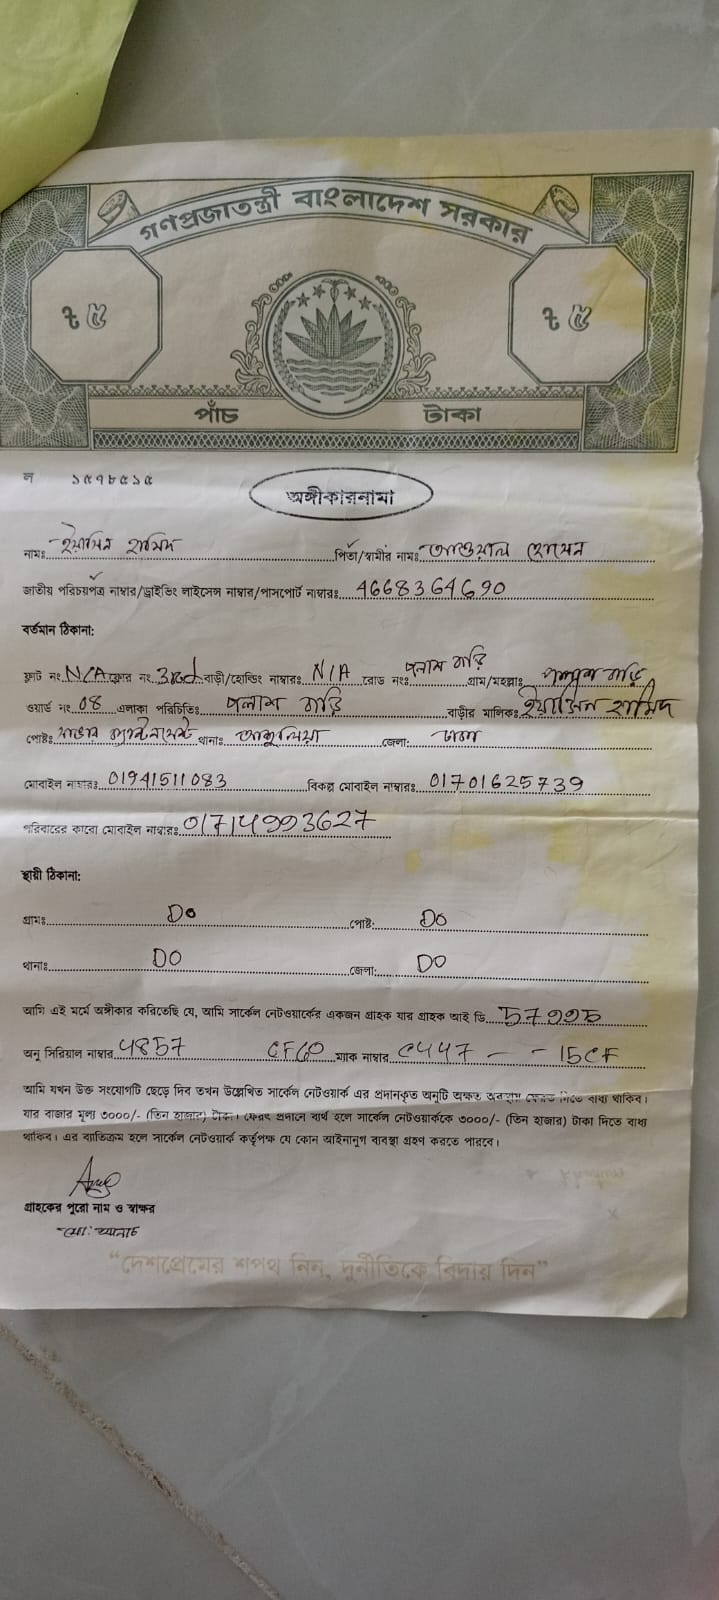 গণপ্রজাতন্ত্রী বাংলাদেশ সরকার
৳ ৫ ৳ ৫
পাঁচ টাকা
ন ১৫৭৮৫১৫
অঙ্গীকারনামা
নামঃ ইয়াসিন হামিদ পিতা/স্বামীর নামঃ হোসেন
জাতীয় পরিচয়পত্র নাম্বার/ড্রাইভিং লাইসেন্স নাম্বার/পাসপোর্ট নাম্বারঃ 4668364690
বর্তমান ঠিকানা:
ফ্লাট নং N/A ফ্লোর নং 3rd বাড়ী/হোল্ডিং নাম্বারঃ N/A রোড নংঃ পলাশ বাড়ি গ্রাম/মহল্লাঃ পলাশ বাড়ি
ওয়ার্ড নং 08 এলাকা পরিচিতিঃ পলাশ বাড়ি বাড়ীর মালিকঃ ইয়াসিন হামিদ
পোষ্টঃ সাভার ক্যান্টনমেন্ট থানাঃ আশুলিয়া জেলাঃ ঢাকা
মোবাইল নাম্বারঃ 01941511083 বিকল্প মোবাইল নাম্বারঃ 01701625739
পরিবারের কারো মোবাইল নাম্বারঃ 01714993627
স্থায়ী ঠিকানা:
গ্রামঃ Do পোষ্ট: Do
থানাঃ DO জেলা: DO
আমি এই মর্মে অঙ্গীকার করিতেছি যে, আমি সার্কেল নেটওয়ার্কের একজন গ্রাহক যার গ্রাহক আই ডি
অনু সিরিয়াল নাম্বার 4857 ম্যাক নাম্বার C447 - - 15CF
আমি যখন উক্ত সংযোগটি ছেড়ে দিব তখন উল্লেখিত সার্কেল নেটওয়ার্ক এর প্রদানকৃত অনুটি অক্ষত অবস্থায় ফেরত দিতে বাধ্য থাকিব।
যার বাজার মূল্য ৩০০০/- (তিন হাজার) টাকা। ফেরৎ প্রদানে ব্যর্থ হলে সার্কেল নেটওয়ার্ককে ৩০০০/- (তিন হাজার) টাকা দিতে বাধ্য
থাকিব। এর ব্যতিক্রম হলে সার্কেল নেটওয়ার্ক কর্তৃপক্ষ যে কোন আইনানুগ ব্যবস্থা গ্রহণ করতে পারবে।
গ্রাহকের পুরো নাম ও স্বাক্ষর
"দেশপ্রেমের শপথ নিন, দুর্নীতিকে বিদায় দিন"